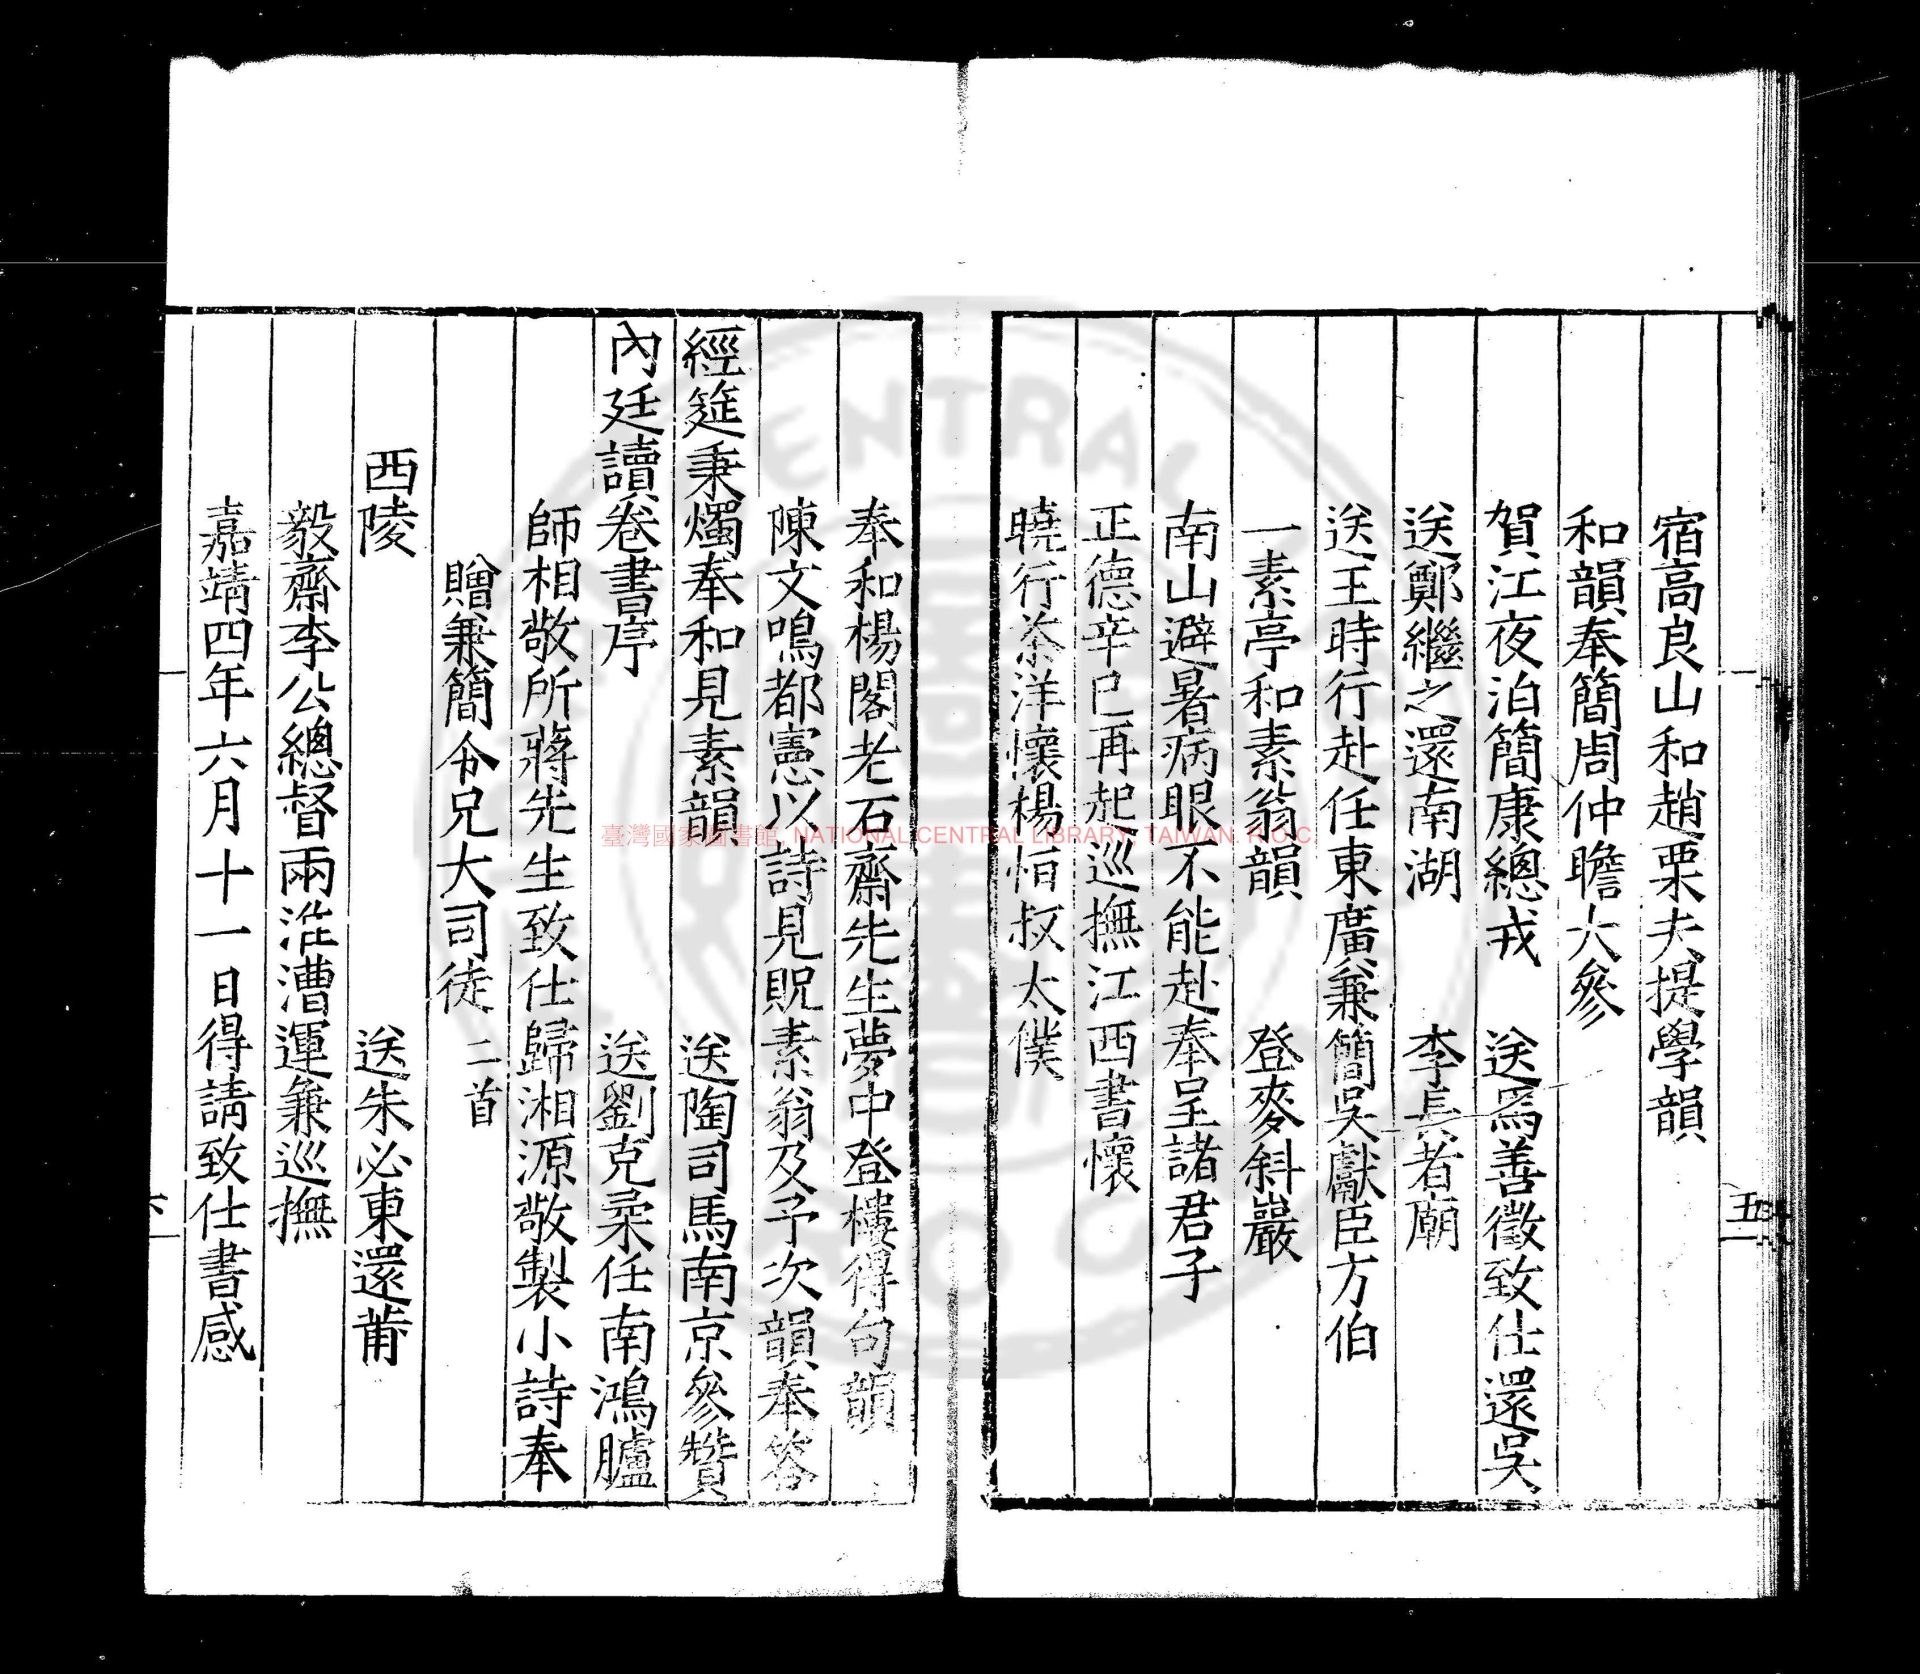 宿高良山和趙栗夫提學韻
和韻奉簡周仲瞻大參
賀江夜泊簡康總戎　送爲善徵致仕還吳
送鄭繼之還南湖　李長者廟
送王時行赴任東廣兼簡吳獻臣方伯
一素亭和素翁韻　登麥斜巖
南山避暑病眼不能赴奉呈諸君子
正德辛巳再起巡撫江西書懷
曉行茶洋懷楊恒叔太僕
五
奉和楊閣老石齋先生夢中登樓得句韻
陳文鳴都憲以詩見貺素翁及予次韻奉答
經筵秉燭奉和見素韻　送陶司馬南京參贊
內廷讀卷書序　送劉克柔任南鴻臚
師相敬所蔣先生致仕歸湘源敬製小詩奉
贈兼簡令兄大司徒　二首
西陵　送朱必東還莆
毅齋李公總督兩淮漕運兼巡撫
嘉靖四年六月十一日得請致仕書感
臺灣國家圖書館, NATIONAL CENTRAL LIBRARY, TAIWAN. R.O.C.